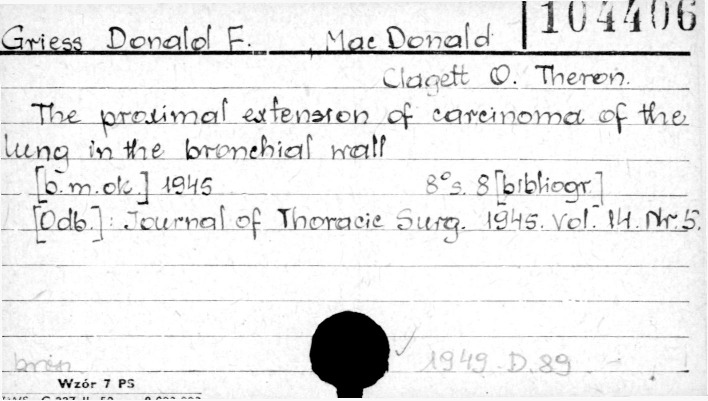 104406
Griess Donald F. , Mac Donald
Clagett O. Theron.
The proximal extension of carcinoma of the
lung in the bronchial wall
[b.m.ok.] 1945 8°s. 8 [bibliogr.]
[Odb.]: Journal of Thoracic Surg. 1945. Vol. 14. Nr. 5.
brosz.
1949 D. 89
Wzór 7 PS